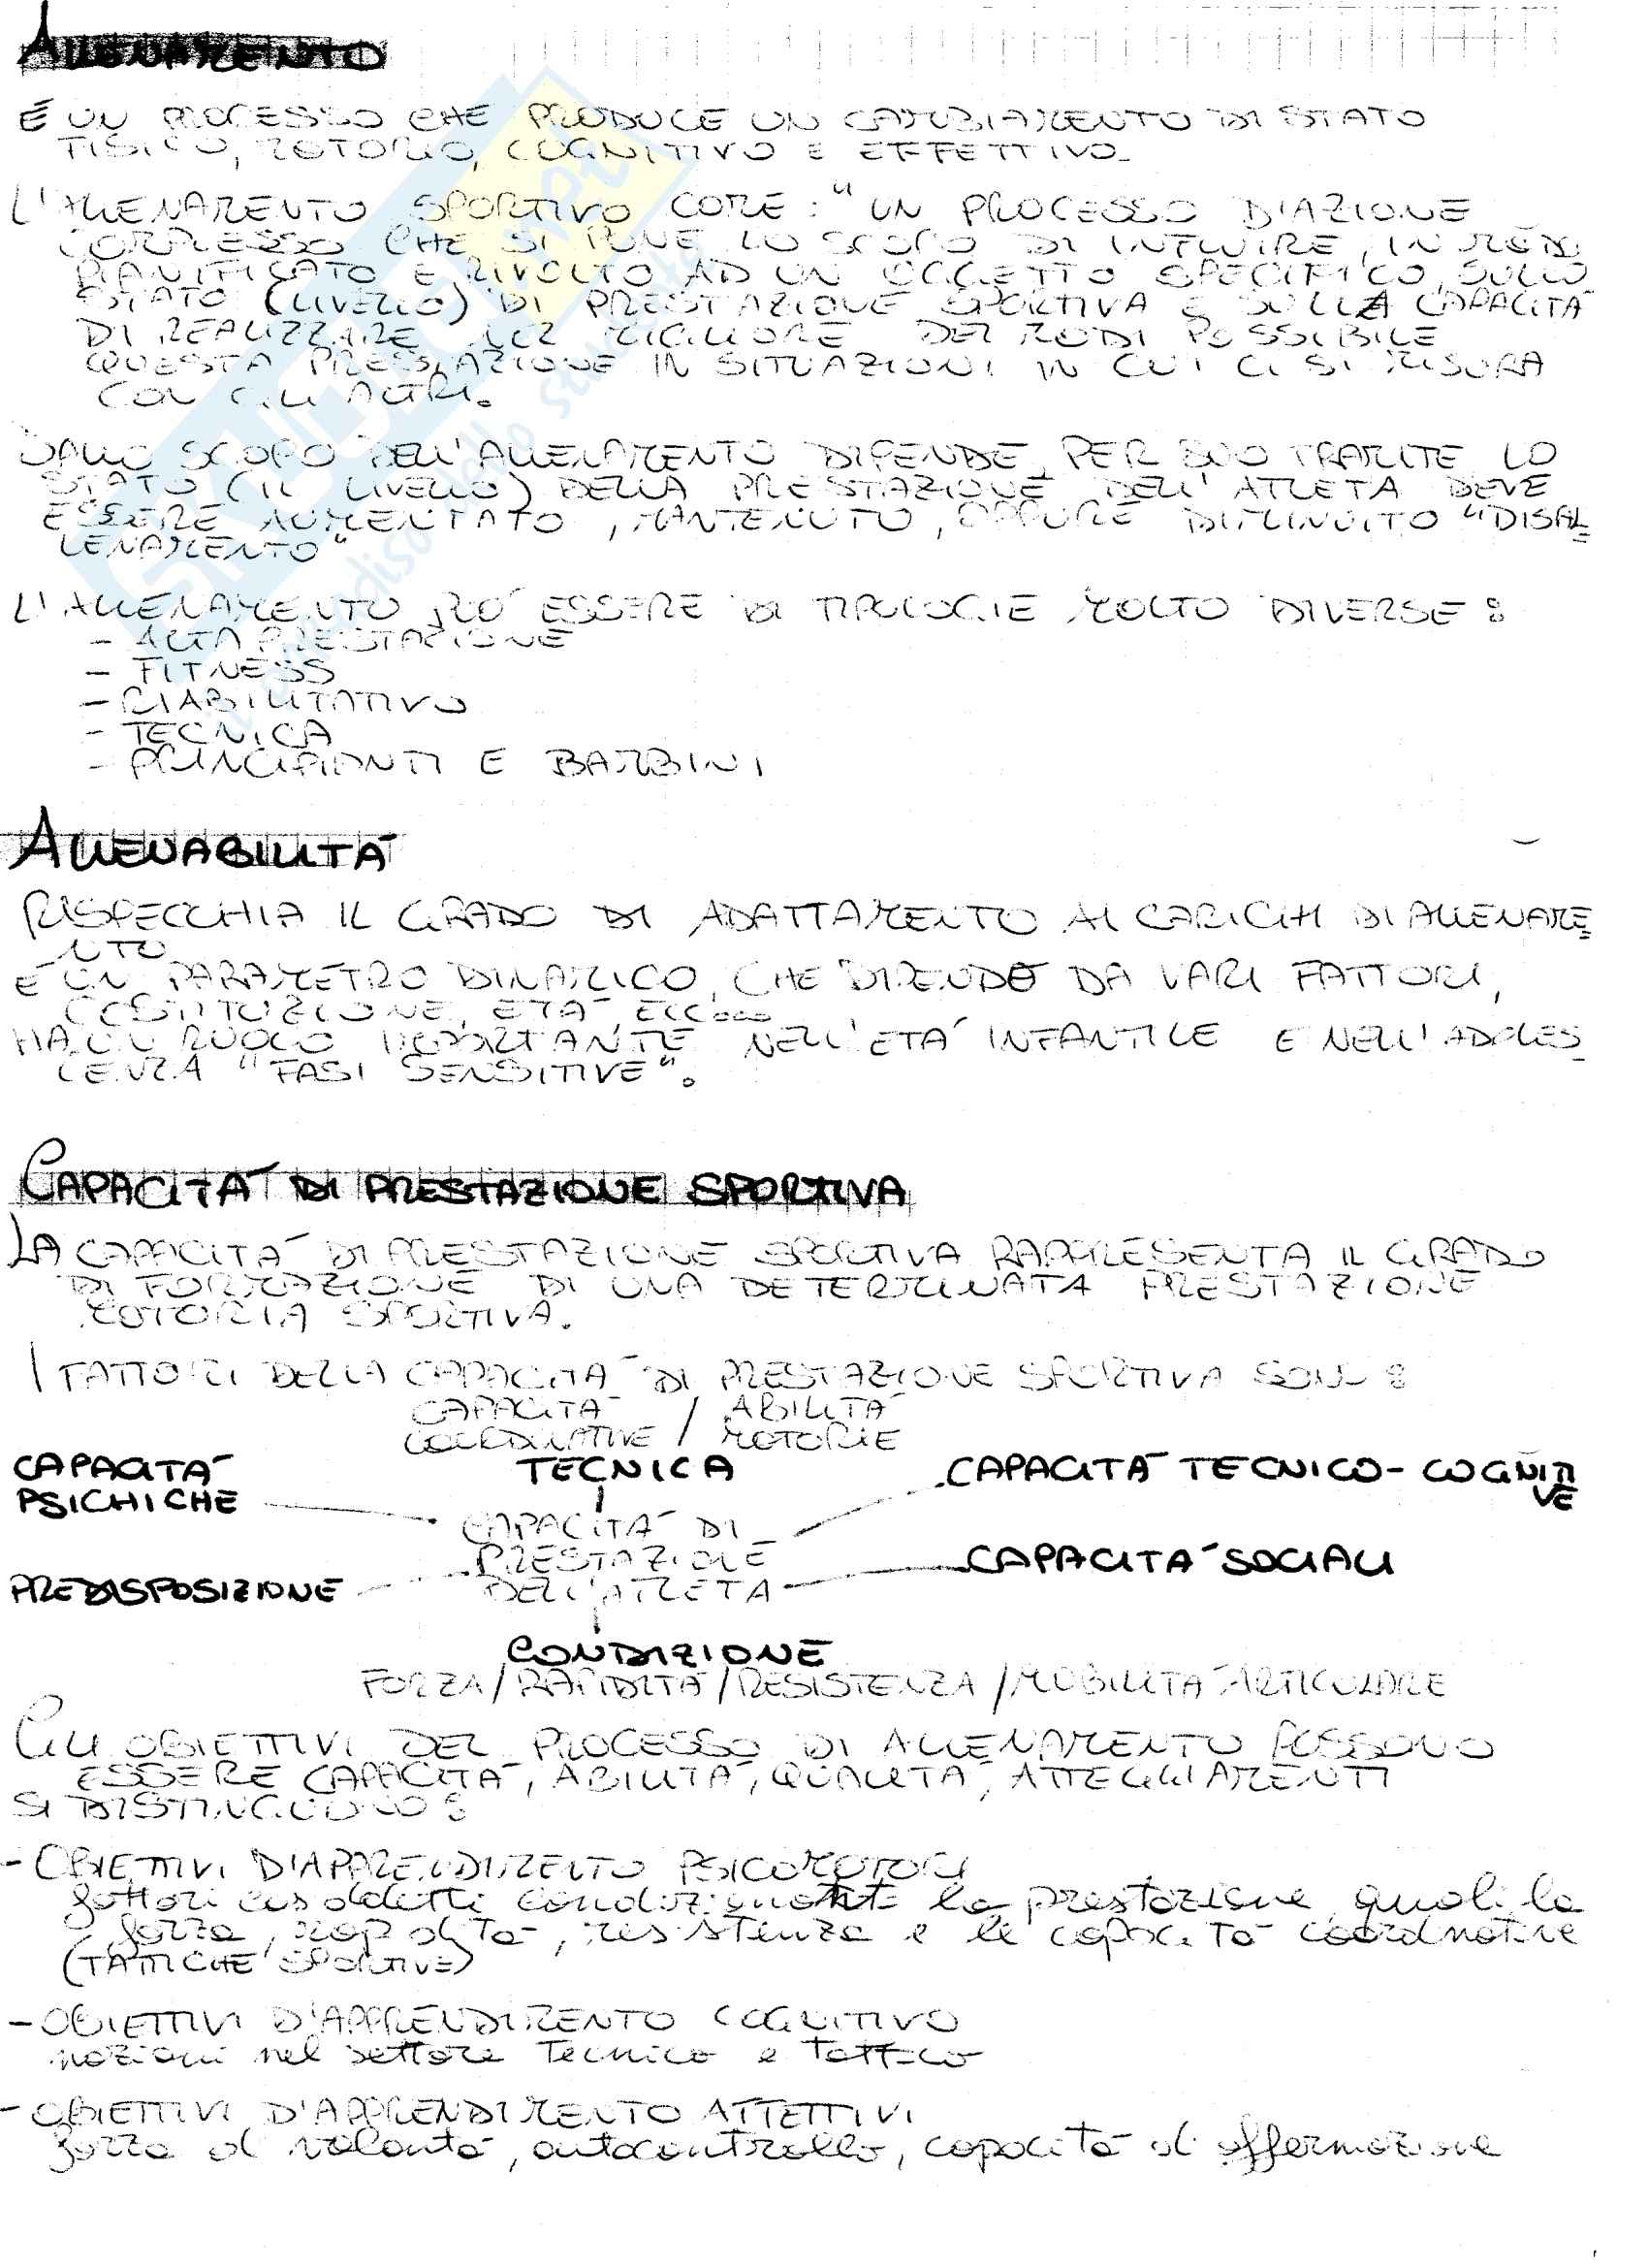 ALLENAMENTO
É UN PROCESSO CHE PRODUCE UN CAMBIAMENTO DI STATO
FISICO, MOTORIO, COGNITIVO E EFFETTIVO.
L'ALLENAMENTO SPORTIVO COME: "UN PROCESSO D'AZIONE
COMPLESSO CHE SI PONE LO SCOPO DI INFLUIRE, IN MODO
PIANIFICATO E RIVOLTO AD UN OGGETTO SPECIFICO, SULLO
STATO (LIVELLO) DI PRESTAZIONE SPORTIVA E SULLA CAPACITÁ
DI REALIZZARE NEL MIGLIORE DEI MODI POSSIBILE
QUESTA PRESTAZIONE IN SITUAZIONI IN CUI CI SI MISURA
CON GLI ALTRI.
DALLO SCOPO DELL'ALLENAMENTO DIPENDE, PER SUO TRAMITE LO
STATO (IL LIVELLO) DELLA PRESTAZIONE DELL'ATLETA DEVE
ESSERE AUMENTATO, MANTENUTO, OPPURE DIMINUITO "DISAL
LENAMENTO"
L'ALLENAMENTO PUO' ESSERE DI TIPOLOGIE MOLTO DIVERSE:
- ALTA PRESTAZIONE
- FITNESS
- RIABILITATIVO
- TECNICA
- PRINCIPIANTI E BAMBINI
ALLENABILITÁ
RISPECCHIA IL GRADO DI ADATTAMENTO AI CARICHI DI ALLENAME
NTO
É UN PARAMETRO DINAMICO, CHE DIPENDE DA VARI FATTORI,
COSTITUZIONE, ETÁ ECC...
HA UN RUOLO IMPORTANTE NELL'ETÁ INFANTILE E NELL'ADOLES
CENZA "FASI SENSITIVE".
CAPACITÁ DI PRESTAZIONE SPORTIVA
LA CAPACITÁ DI PRESTAZIONE SPORTIVA RAPPRESENTA IL GRADO
DI FORMAZIONE DI UNA DETERMINATA PRESTAZIONE
MOTORIA SPORTIVA.
I FATTORI DELLA CAPACITÁ DI PRESTAZIONE SPORTIVA SONO:
CAPACITÁ / ABILITÁ
COORDINATIVE / MOTORIE
CAPACITÁ TECNICA CAPACITÁ TECNICO-COGNITI
PSICHICHE VE
CAPACITÁ DI
PRESTAZIONE CAPACITÁ SOCIALI
PREDISPOSIZIONE DELL'ATLETA
CONDIZIONE
FORZA/RAPIDITÁ/RESISTENZA/MOBILITÁ ARTICOLARE
GLI OBIETTIVI DEL PROCESSO DI ALLENAMENTO POSSONO
ESSERE CAPACITÁ, ABILITÁ, QUALITÁ, ATTEGGIAMENTI
SI DISTINGUONO:
- OBIETTIVI D'APPRENDIMENTO PSICOMOTORI
fattori cosoddetti condizionanti la prestazione, quali la
forza, rapidità, resistenza e le capacità coordinative
(TATTICHE SPORTIVE)
- OBIETTIVI D'APPRENDIMENTO COGNITIVO
nozioni nel settore tecnico e tattico
- OBIETTIVI D'APPRENDIMENTO AFFETTIVI
forza di volontà, autocontrollo, capacità di affermazione